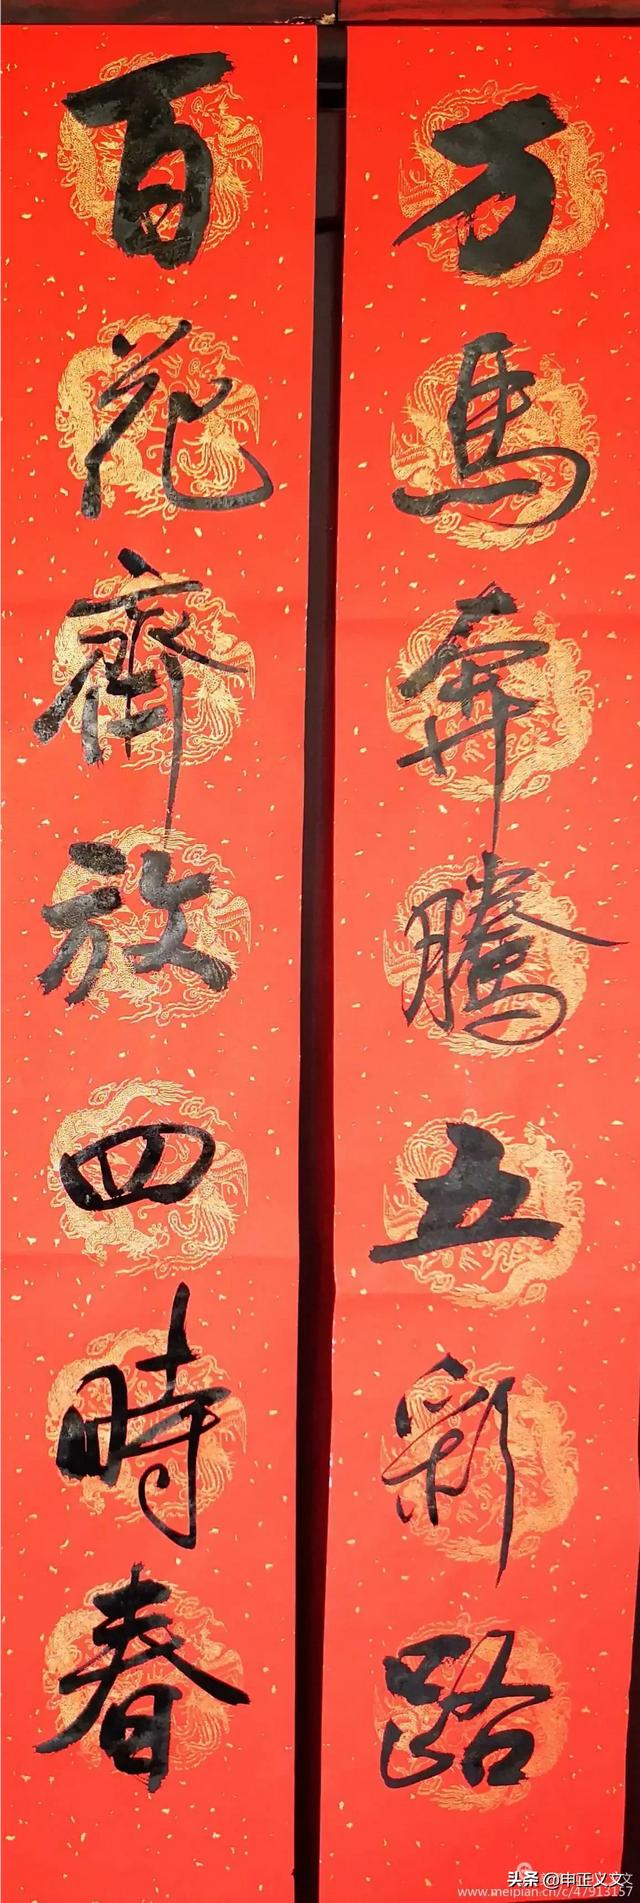 万馬奔騰五彩路
百花齊放四時春
头条@申正义文
www.meipian.cn/c/47913157